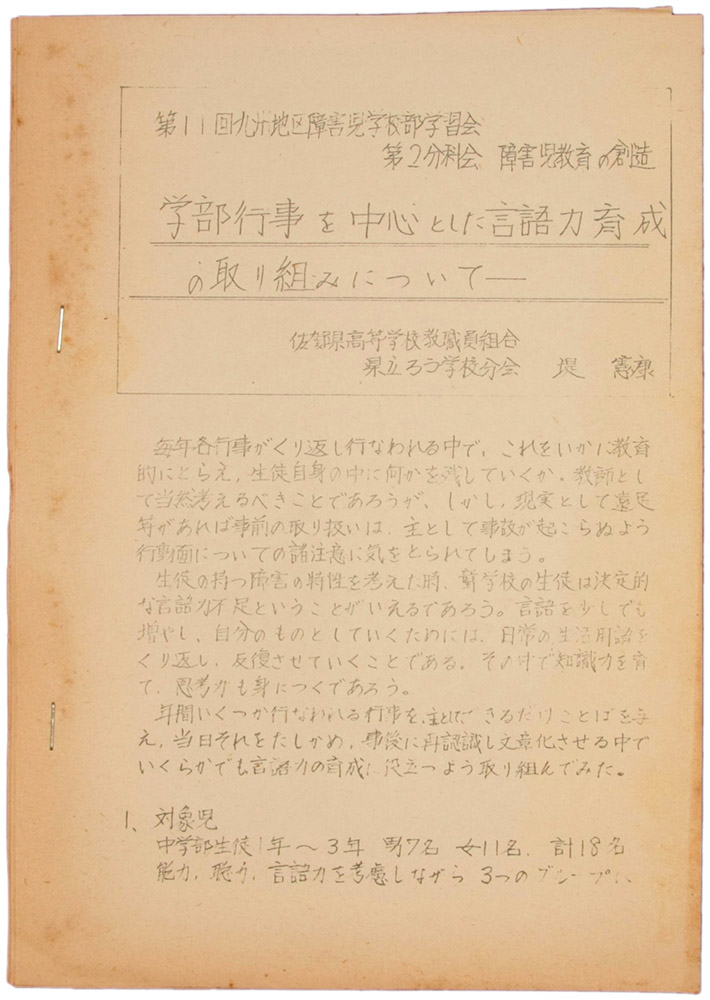 第11回九州地区障害児学校部学習会
第2分科会 障害児教育の創造
学部行事を中心とした言語力育成
の取り組みについて―
佐賀県高等学校教職員組合
県立ろう学校分会 堤 憲康
毎年各行事がくり返し行なわれる中で、これをいかに教育
的にとらえ、生徒自身の中に何かを残していくか。教師とし
て当然考えるべきことであろうが、しかし、現実として遠足
等があれば事前の取り扱いは、主として事故が起こらぬよう
行動面についての諸注意に気をとられてしまう。
生徒の持つ障害の特性を考えた時、聾学校の生徒は決定的
な言語力不足ということがいえるであろう。言語を少しでも
増やし、自分のものとしていくためには、日常の生活用語を
くり返し、反復させていくことである。その中で知識力を育
て、思考力も身につくであろう。
年間いくつか行なわれる行事を、主としてできるだけことばを与
え、当日それをたしかめ、事後に再認識し文章化させる中で
いくらかでも言語力の育成に役立つよう取り組んでみた。
1、対象児
中学部生徒1年〜3年 男7名 女11名、計18名
能力、聴力、言語力を考慮しながら 3つのグループに